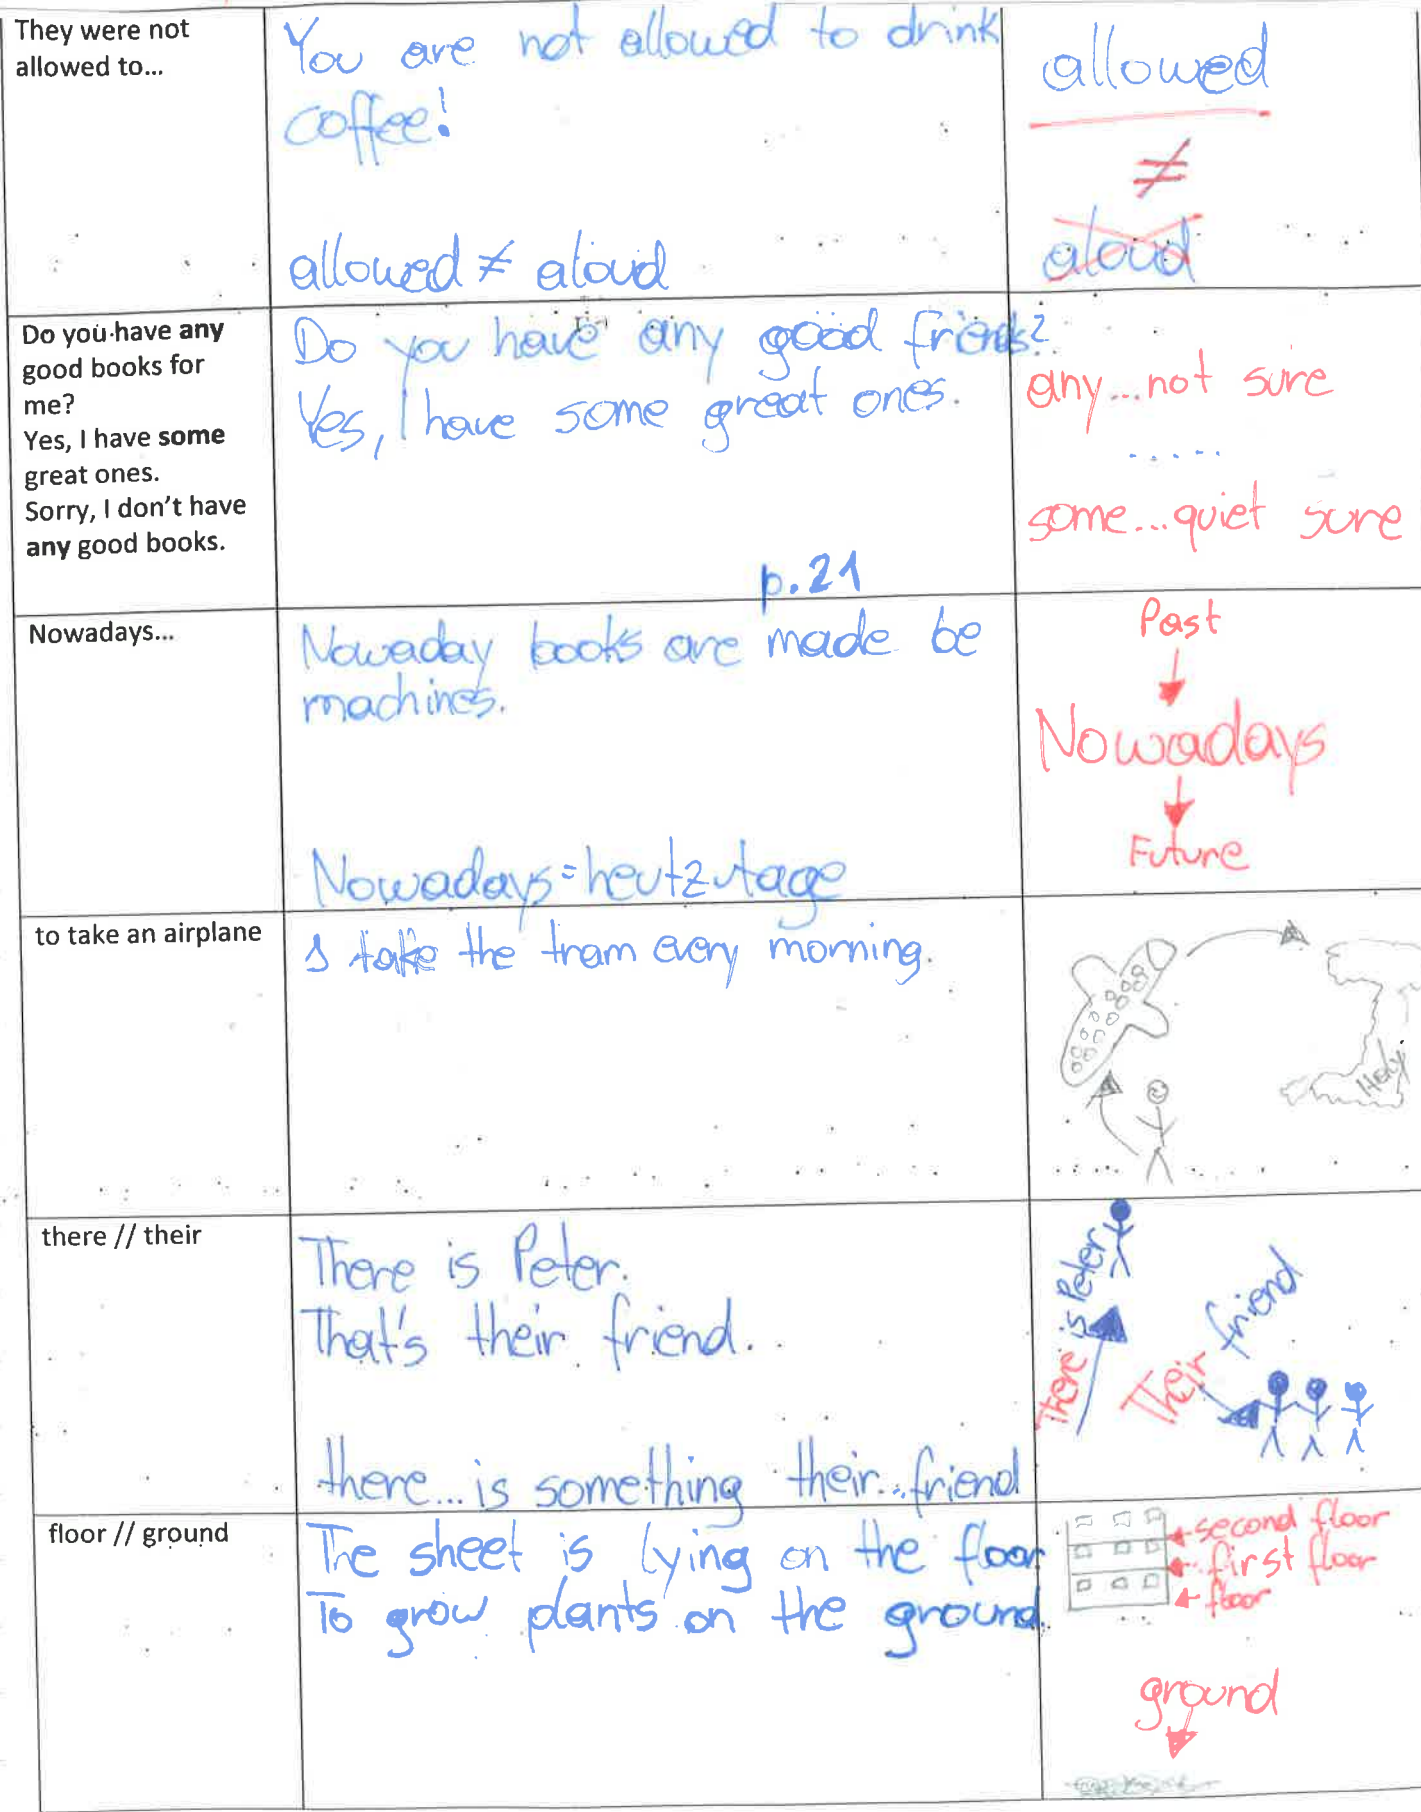 They were not
allowed to...
You are not allowed to drink
coffee!
allowed ≠ aloud
allowed
≠
aloud
Do you have any
good books for
me?
Yes, I have some
great ones.
Sorry, I don't have
any good books.
Do you have any good friends?
Yes, I have some great ones.
p.21
any...not sure
.....
some...quiet sure
Nowadays...
Nowaday books are made be
machines.
Nowadays=heutzutage
Past
Nowadays
Future
to take an airplane
I take the tram every morning.
Italy
there // their
There is Peter.
That's their friend.
there... is something their...friend
There is Peter
Their friend
floor // ground
The sheet is lying on the floor
To grow plants on the ground.
second floor
first floor
floor
ground